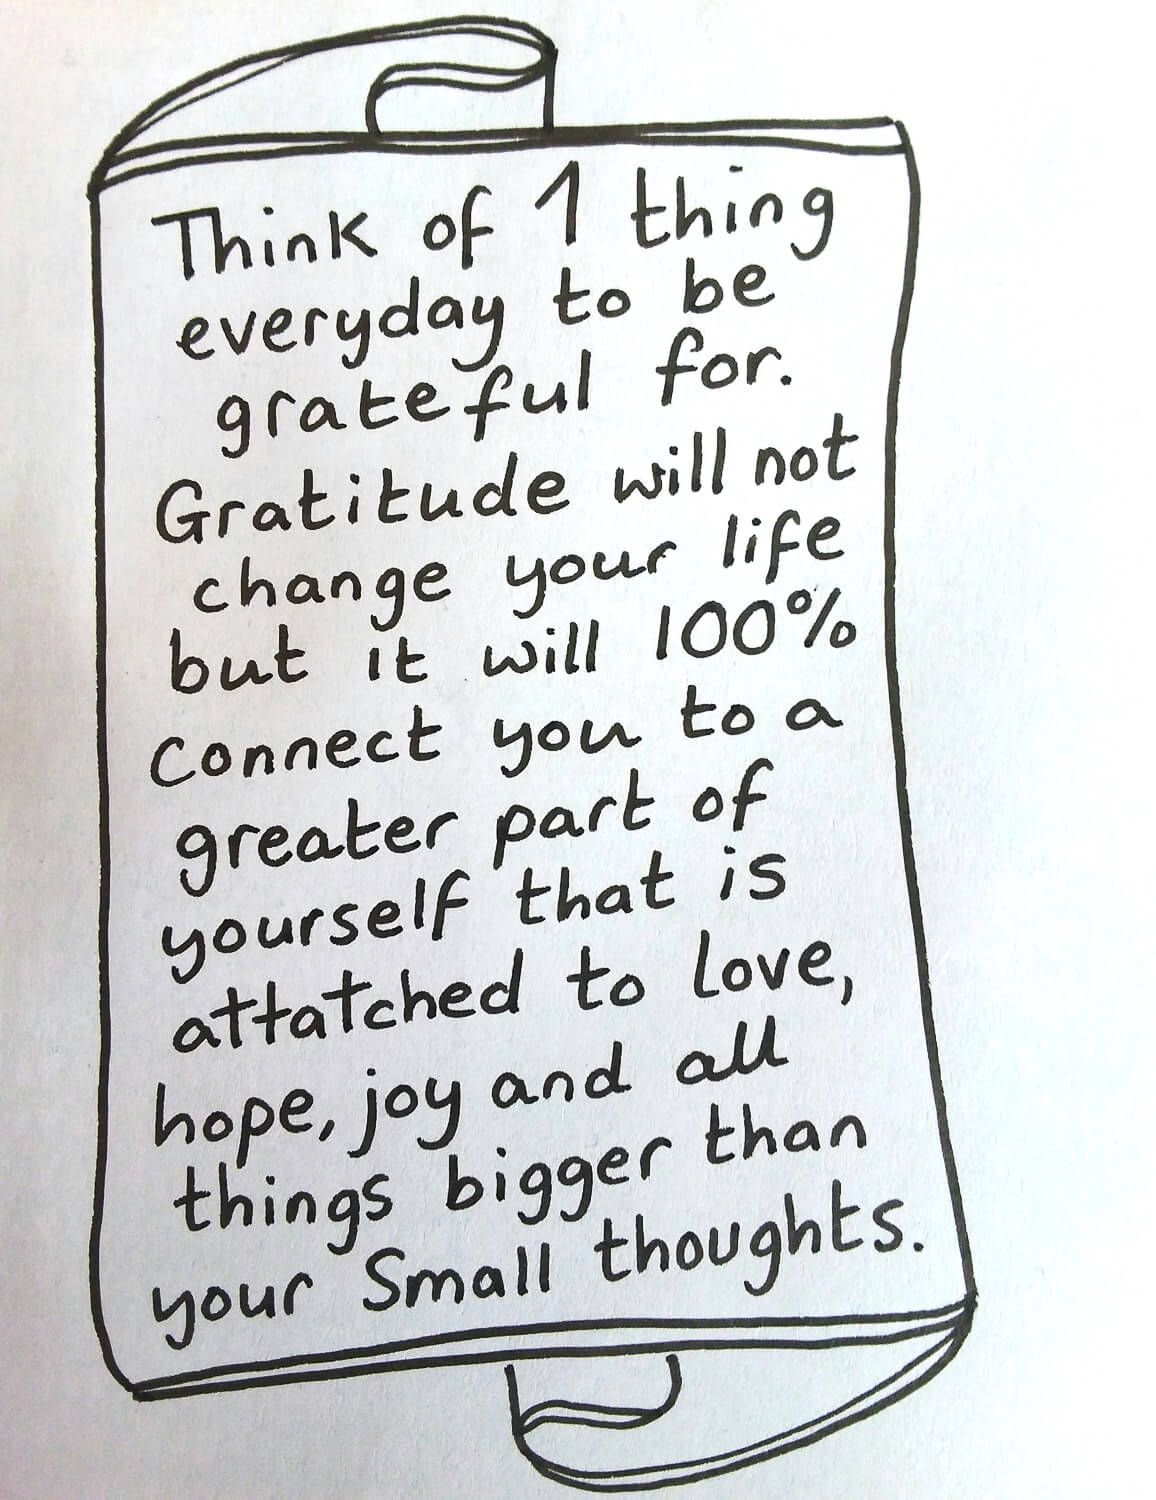 Think of 1 thing
everyday to be
grateful for.
Gratitude will not
change your life
but it will 100%
connect you to a
greater part of
yourself that is
attatched to love,
hope, joy and all
things bigger than
your small thoughts.